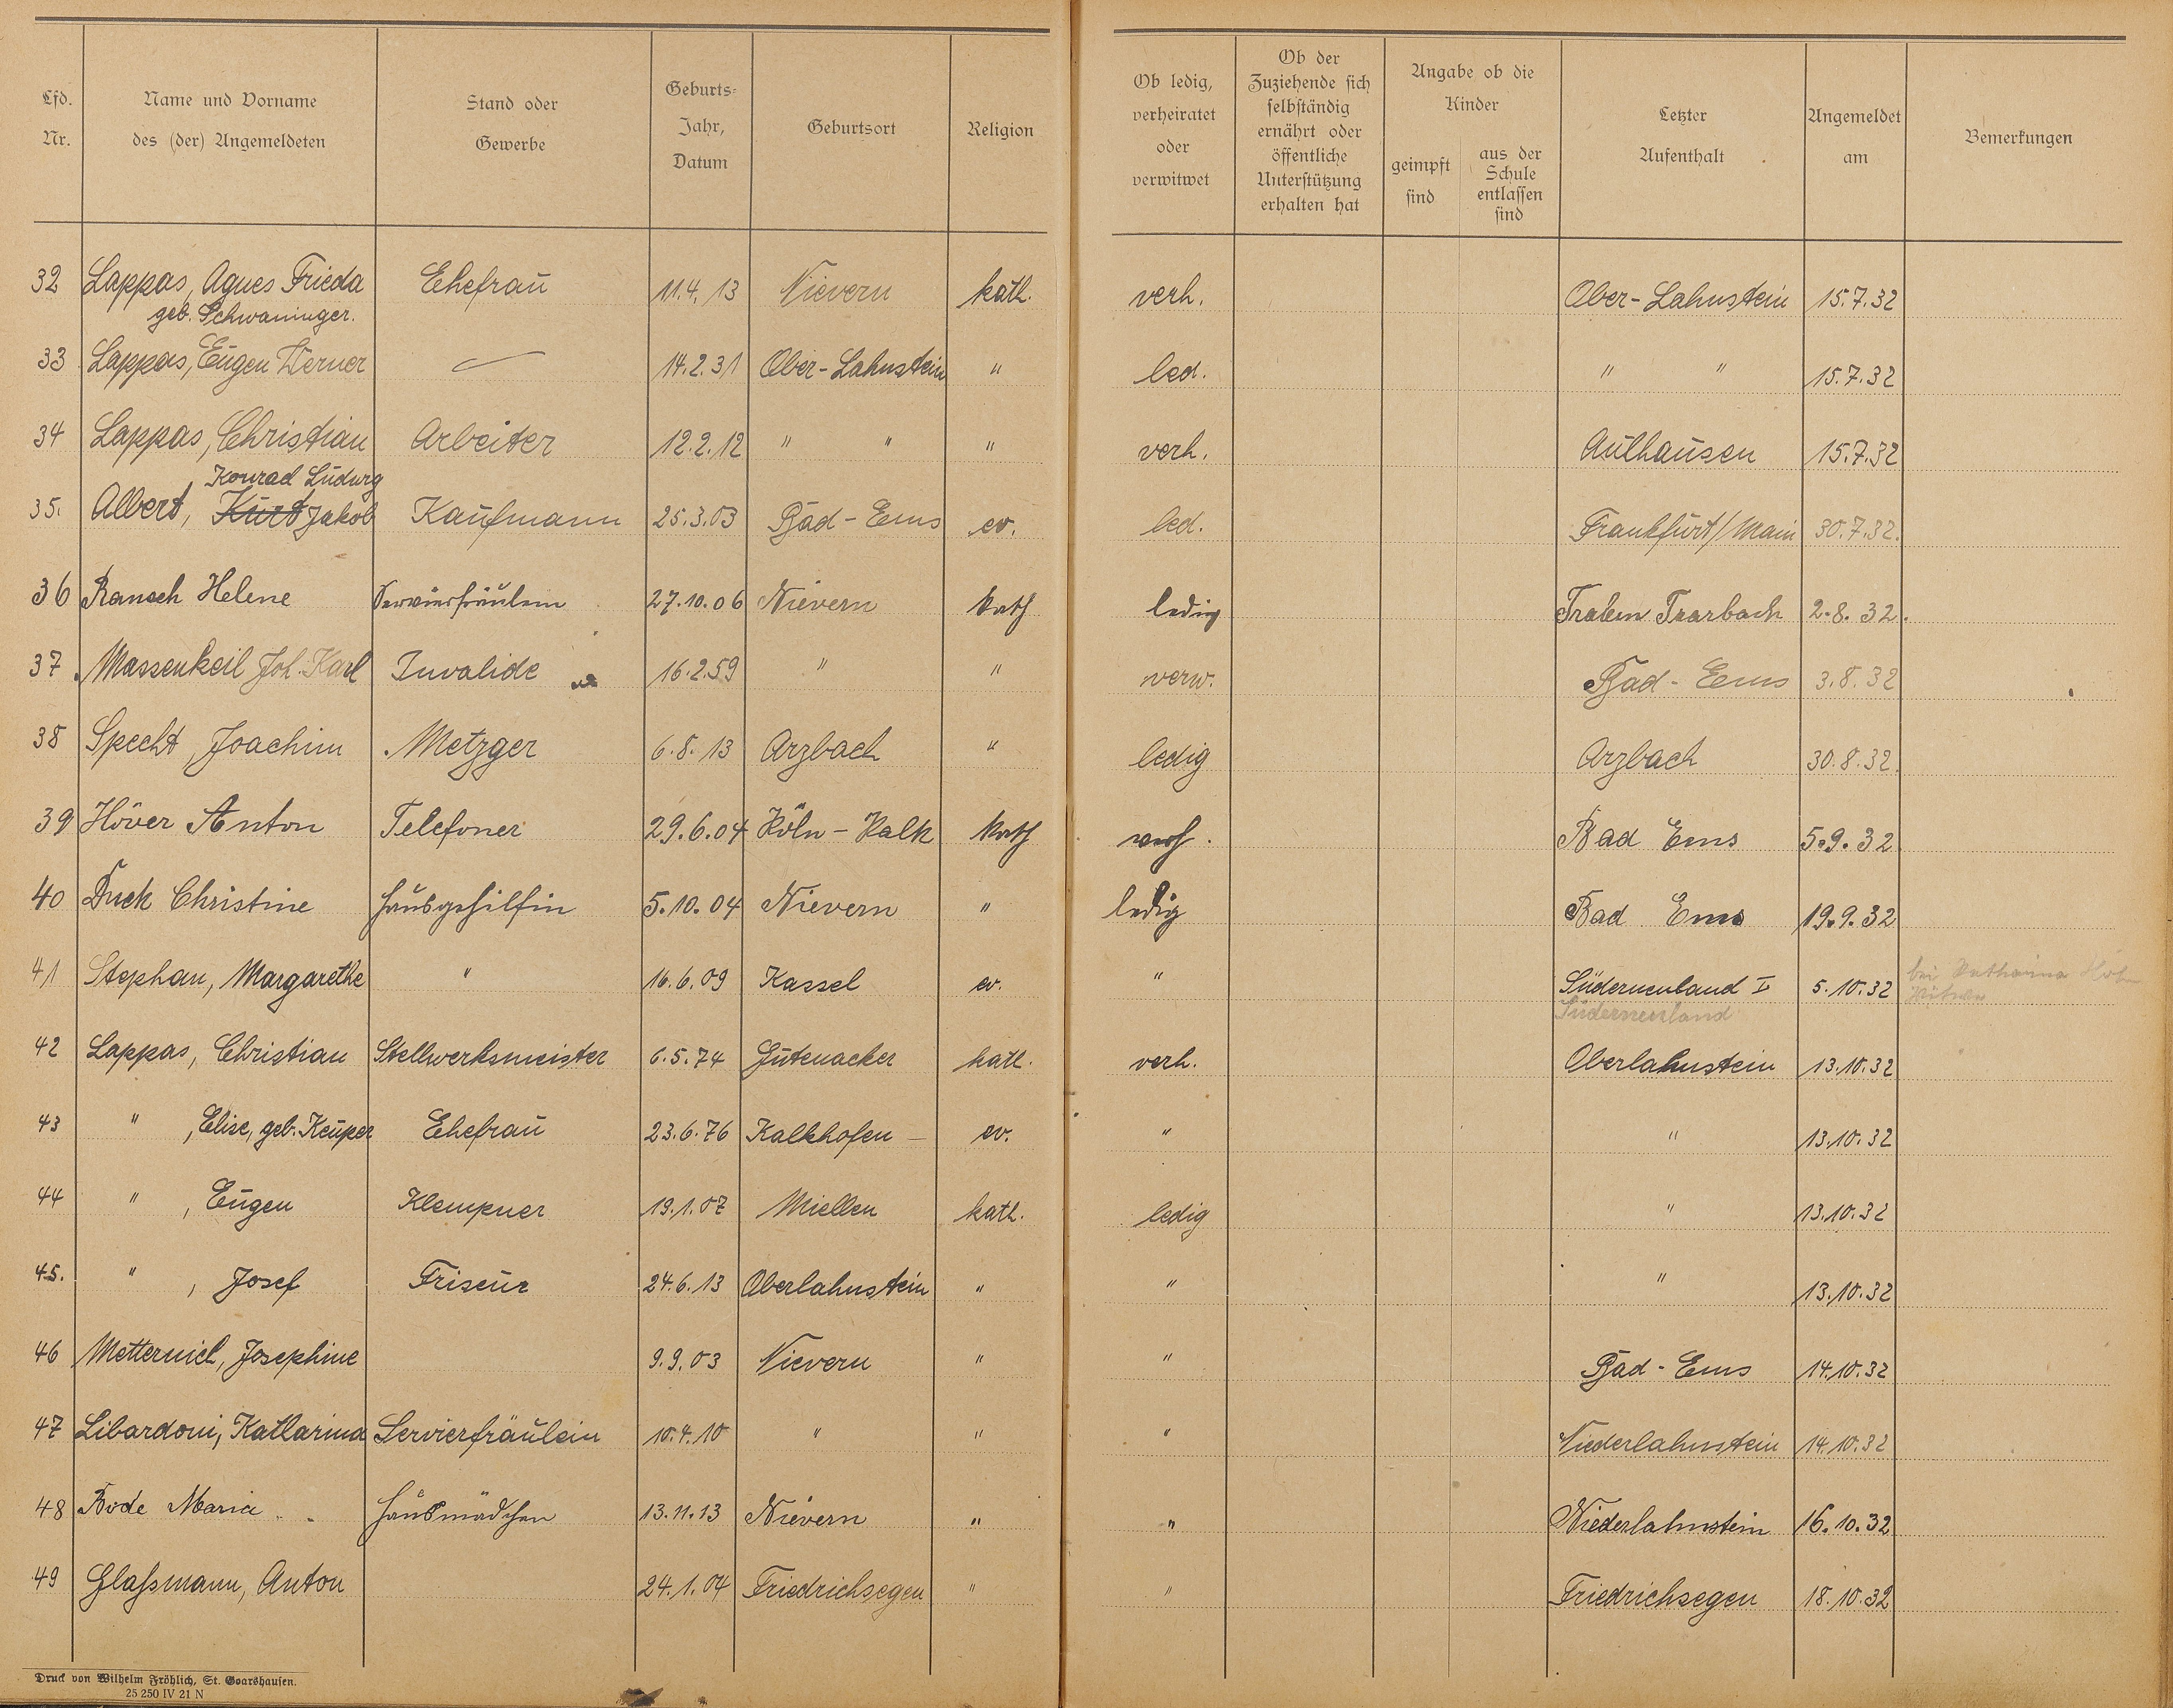 Lfd. Nr.
Name und Vorname des (der) Angemeldeten
Stand oder Gewerbe
Geburts-Jahr, Datum
Geburtsort
Religion
Ob ledig, verheiratet oder verwitwet
Ob der Zuziehende sich selbständig ernährt oder öffentliche Unterstützung erhalten hat
Angabe ob die Kinder
geimpft sind
aus der Schule entlassen sind
Letzter Aufenthalt
Angemeldet am
Bemerkungen
32 Lappas, Agnes Frieda Ehefrau 11.4.13 Nievern kath. verh. Ober-Lahnstein 15.7.32
geb. Schwaninger.
33 Lappas, Eugen Werner — 14.2.31 Ober-Lahnstein " led. " " 15.7.32
34 Lappas, Christian Arbeiter 12.2.12 " " " verh. Aulhausen 15.7.32
Konrad Ludwig
35. Albert, Kurt Jakob Kaufmann 25.3.03 Bad-Ems ev. led. Frankfurt/Main 30.7.32.
36 Helene Servierfräulein 27.10.06 Nievern kath ledig Traben Trarbach 2.8.32.
37 Massenkeil Joh. Karl Invalide 16.2.59 " " verw. Bad-Ems 3.8.32
38 Specht, Joachim Metzger 6.8.13 Arzbach " ledig Arzbach 30.8.32.
39 Höver Anton Telefoner 29.6.04 Köln-Kalk kath verh. Bad Ems 5.9.32
40 Duck Christine Hausgehilfin 5.10.04 Nievern " ledig Bad Ems 19.9.32
41 Stephan, Margarethe " 16.6.09 Kassel ev. " Süderneuland I 5.10.32 bei Katharina
Süderneuland
42 Lappas, Christian Stellwerksmeister 6.5.74 Gutenacker kath. verh. Oberlahnstein 13.10.32
43 " , Elise, geb. Keuper Ehefrau 23.6.76 Kalkhofen ev. " " 13.10.32
44 " , Eugen Klempner 19.1.07 Miellen kath. ledig " 13.10.32
45. " , Josef Friseur 24.6.13 Oberlahnstein " " " 13.10.32
46 Metternich, Josephine 9.9.03 Nievern " " Bad-Ems 14.10.32
47 Libardoni, Katharina Servierfräulein 10.4.10 " " " Niederlahnstein 14.10.32
48 Bode Maria Hausmädchen 13.11.13 Nievern " " Niederlahnstein 16.10.32
49 Glaßmann, Anton 24.1.04 Friedrichsegen " " Friedrichsegen 18.10.32
Druck von Wilhelm Fröhlich, St. Goarshausen.
25 250 IV 21 N